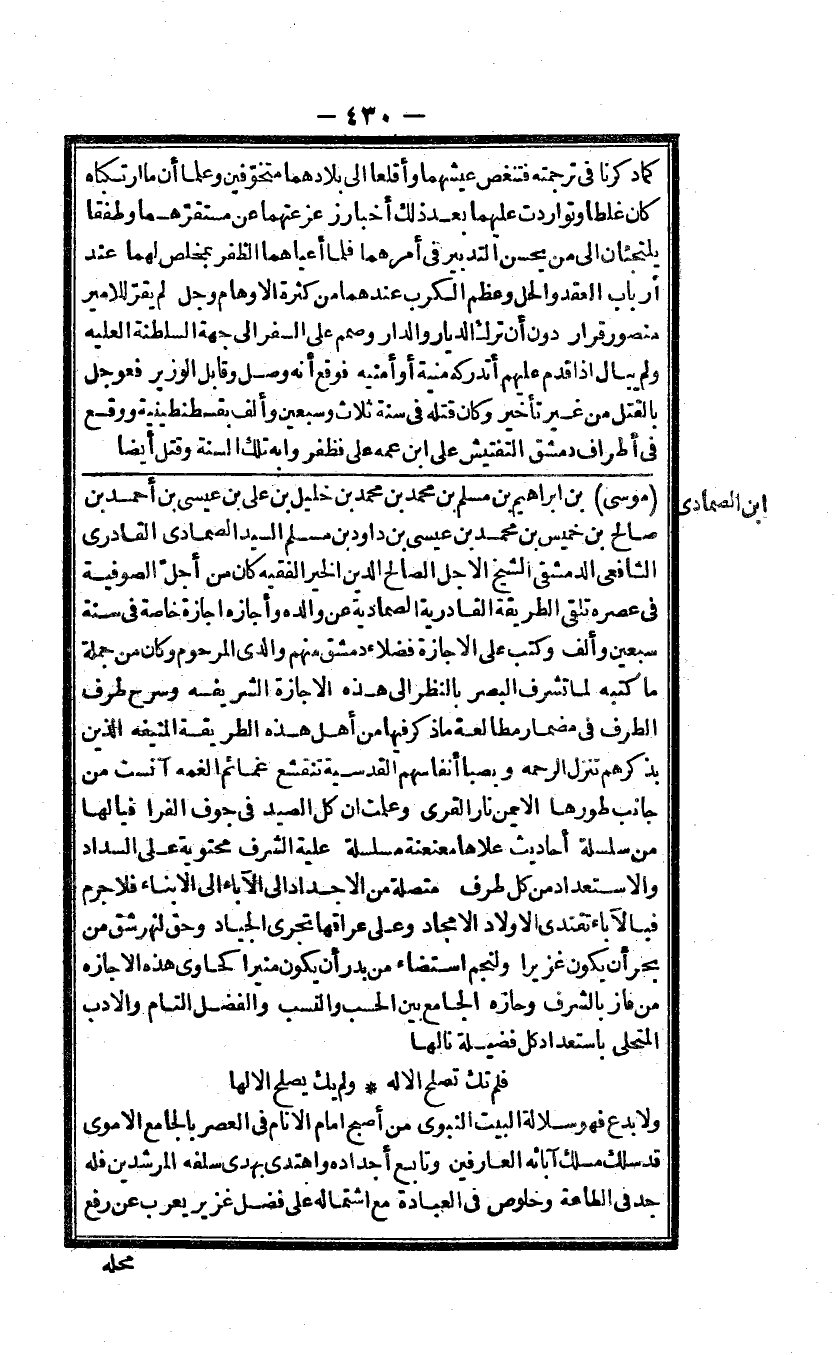 — ٤٣٠ —
كما ذكرنا فى ترجمته فتنغص عيشهما وأقلعا الى بلادهما متخوّفين وعلما أن ما ارتكباه
كان غلطا وتواردت عليهما بعد ذلك أخبار زعزعتهما عن مستقرّهما وطفقا
يلتجئان الى من يحسن التدبير فى أمرهما فلما أعياهما الظفر بمخلص لهما عند
أرباب العقد والحل وعظم الكرب عندهما من كثرة الاوهام وجل لم يقرّ للامير
منصور قرار دون أن ترك الديار والدار وصمم على السفر الى جهة السلطنة العليه
ولم يبال اذا قدم عليهم أتدركه منية أو أمنيه فوقع أنه وصل وقابل الوزير فعوجل
بالقتل من غير تأخير وكان قتله فى سنة ثلاث وسبعين وألف بقسطنطينية ووقع
فى أطراف دمشق التفتيش على ابن عمه على فظفر وابه تلك السنة وقتل أيضا
(موسى) بن ابراهيم بن مسلم بن محمد بن محمد بن خليل بن على بن عيسى بن أحمد بن
ابن الصمادى
صالح بن خميس بن محمد بن عيسى بن داود بن مسلم السيد الصمادى القادرى
الشافعى الدمشقى الشيخ الاجل الصالح الدين الخير الفقيه كان من أجلّ الصوفية
فى عصره تلقى الطريقة القادرية الصمادية عن والده وأجازه اجازة خاصة فى سنة
سبعين وألف وكتب على الاجازة فضلاء دمشق منهم والدى المرحوم وكان من جملة
ما كتبه لما تشرف البصر بالنظر الى هذه الاجازة الشريفه وسرح طرف
الطرف فى مضمار مطالعة ماذكر فيها من أهل هذه الطريقة المنيفه الذين
بذكرهم تنزل الرحمه وبصبا أنفاسهم القدسية تنقشع غمائم الغمه آنست من
جانب طورها الايمن نار القرى وعلمت ان كل الصيد فى جوف الفرا فيالها
من سلسلة أحاديث علاها معنعنة مسلسلة علية الشرف محتوية على السداد
والاستعداد من كل طرف متصلة من الاجداد الى الآباء الى الابناء فلاجرم
فبالآباء تقتدى الاولاد الامجاد وعلى عراقها تجرى الجياد وحق لنهر شق من
بحر أن يكون غزيرا ولنجم استضاء من بدر أن يكون منيرا كحاوى هذه الاجازه
من فاز بالشرف وحازه الجامع بين الحسب والنسب والفضل التام والادب
المتحلى باستعداد كل فضيلة نالها
فلم تك تصلح الاله * ولم يك يصلح الالها
ولا بدع فهو سلالة البيت النبوى من أصبح امام الانام فى العصر بالجامع الاموى
قد سلك مسلك آبائه العارفين وتابع أجداده واهتدى بهدى سلفه المرشدين فله
جد فى الطاعة وخلوص فى العبادة مع اشتماله على فضل غزير يعرب عن رفع
محله